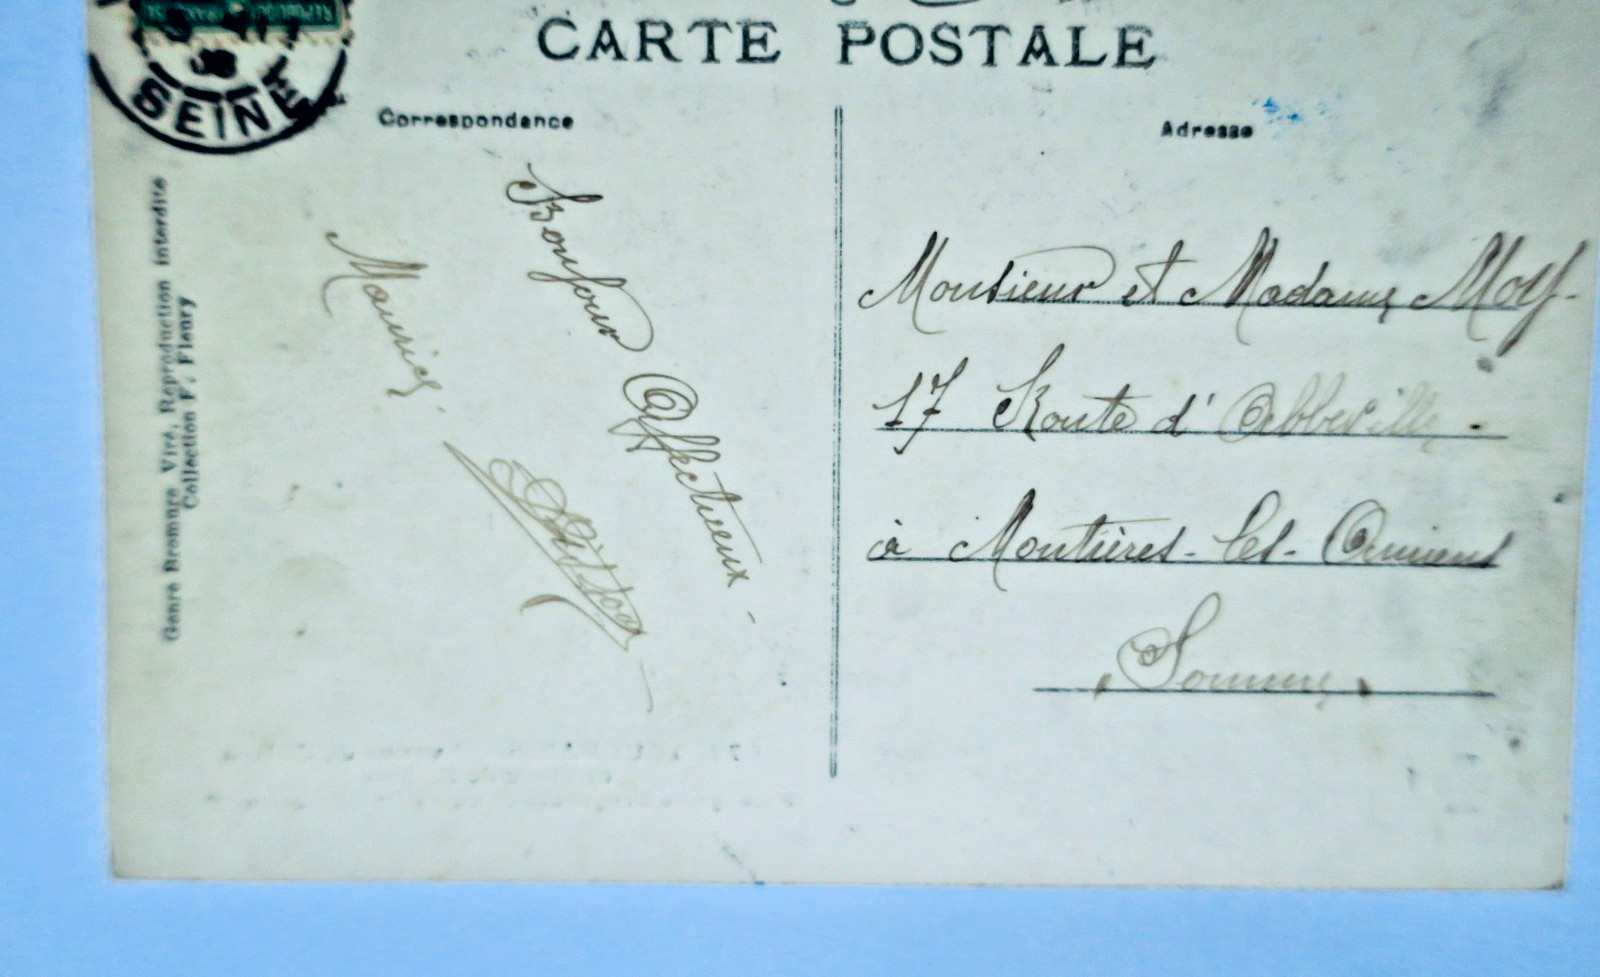 CARTE POSTALE
SEINE
08
Correspondance
Adresse
Genre Bromure Viré, Reproduction interdite
Collection F. Fleury
Bonjour Affectueux -
Maurice
Monsieur et Madame
17 Route d'Abbeville -
à Montières - les - Amiens
Somme